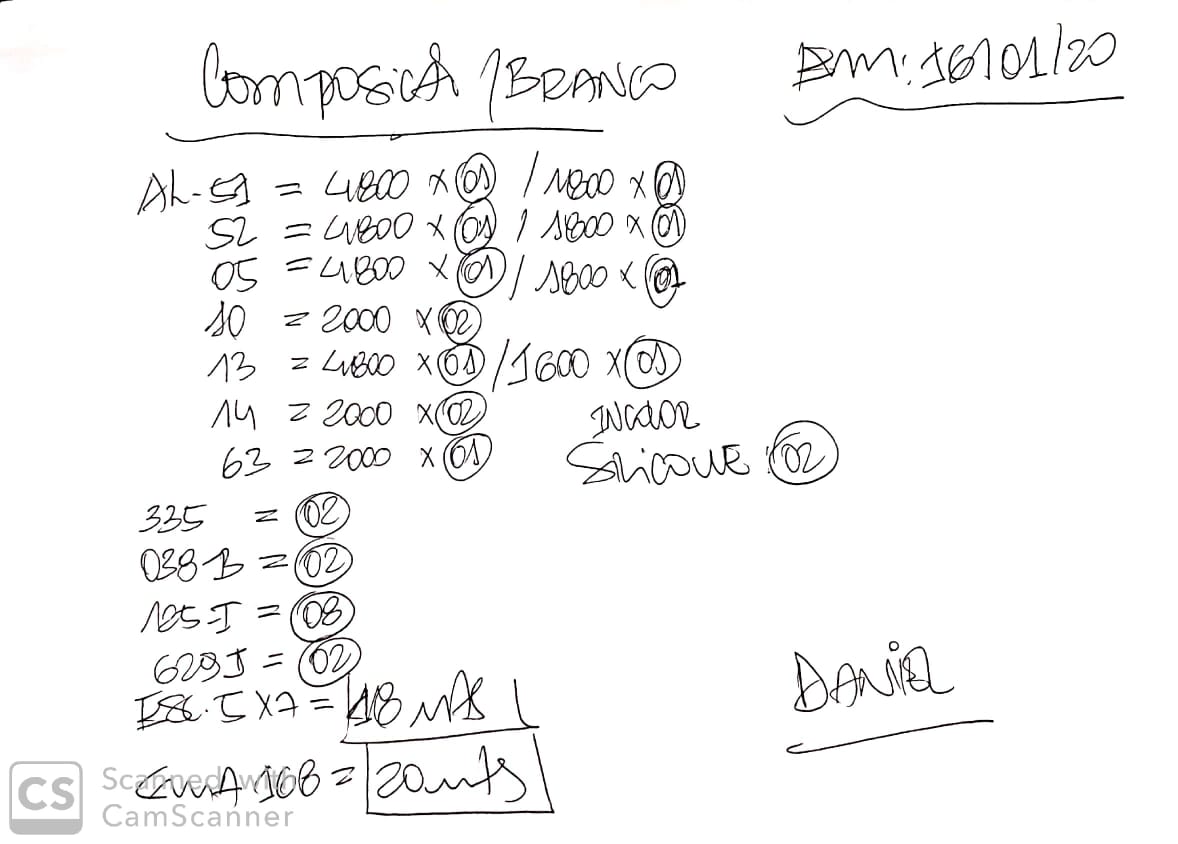 COMPOSICÁ / BRANCO
EM: 16/01/20
AL-51 = 4800 x 01 / 1800 x 01
52 = 4800 x 01 / 1800 x 01
05 = 4800 x 01 / 1800 x 01
10 = 2000 x 02
13 = 4800 x 01 / 1600 x 01
14 = 2000 x 02
INCOLOR
63 = 2000 x 01
SILICONE: 02
335 = 02
038 B = 02
125-I = 08
629 I = 02
ESC. 5 X 7 = 18 mts
20 mts
DANIEL
CS Scanned with
CamScanner